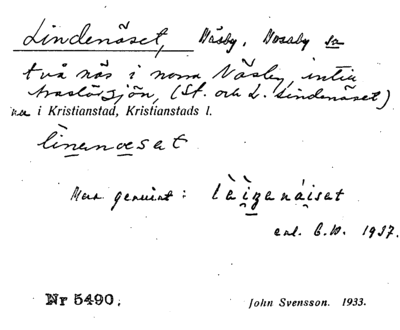 Lindenäset, Näsby, Nosaby sn
två näs i norra Näsby, intill
Araslövsjön, (St. och L. Lindenäset)
nu i Kristianstad, Kristianstads l.
linanæsat
Mera genuint: làizanáisat
enl. 6.10. 1937.
Nr 5490. John Svensson. 1933.